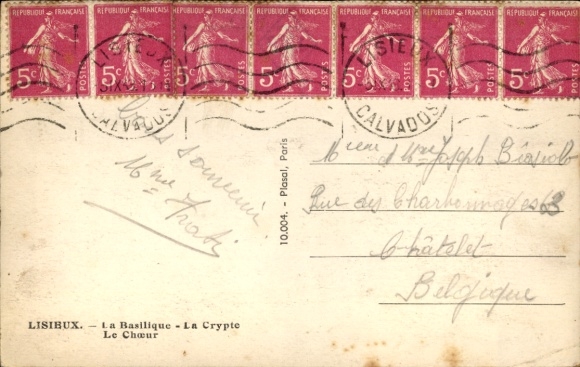 REPUBLIQUE FRANÇAISE REPUBLIQUE FRANÇAISE REPUBLIQUE FRANÇAISE REPUBLIQUE FRANÇAISE REPUBLIQUE FRANÇAISE REPUBLIQUE FRANÇAISE REPUBLIQUE FRANÇAISE
5c POSTES 5c POSTES 5c POSTES 5c POSTES 5c POSTES 5c POSTES 5c POSTES
LISIEUX
CALVADOS
LISIEUX
CALVADOS
souvenir
Mme
10.004. - Plasal, Paris
Mme Joseph
Rue des Charbonnages 63
Châtelet
Belgique
LISIEUX. — La Basilique - La Crypte
Le Chœur